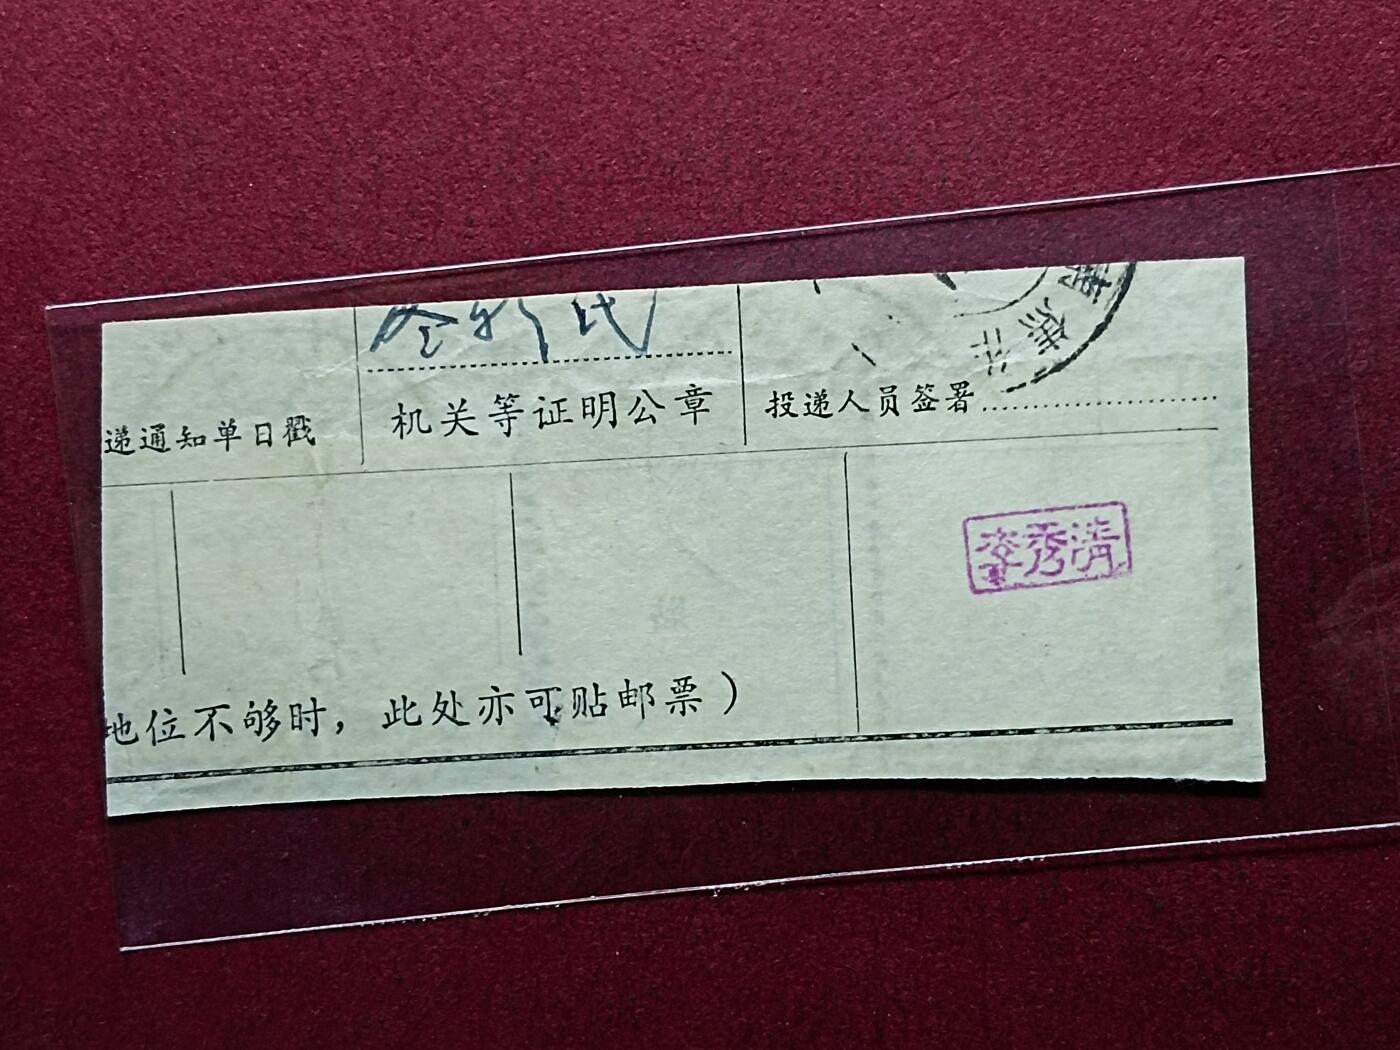 递通知单日戳
机关等证明公章
投递人员签署
李秀清
地位不够时，此处亦可贴邮票）